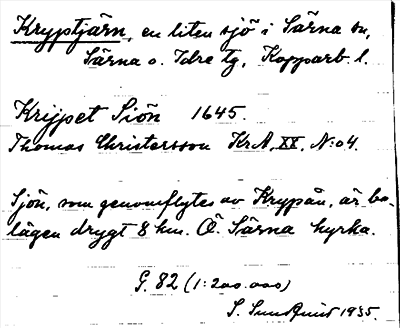 Krypptjärn, en liten sjö i Särna sn,
Särna o. Idre tg, Kopparb. l.
Krijpet Siön 1645.
Thomas Christersson KrA, XX, N:o 4.
Sjön, som genomflytes av Krypån, är be-
lägen drygt 8 km. Ö. Särna kyrka.
G. 82 (1:200.000)
S. Sundquist 1935.